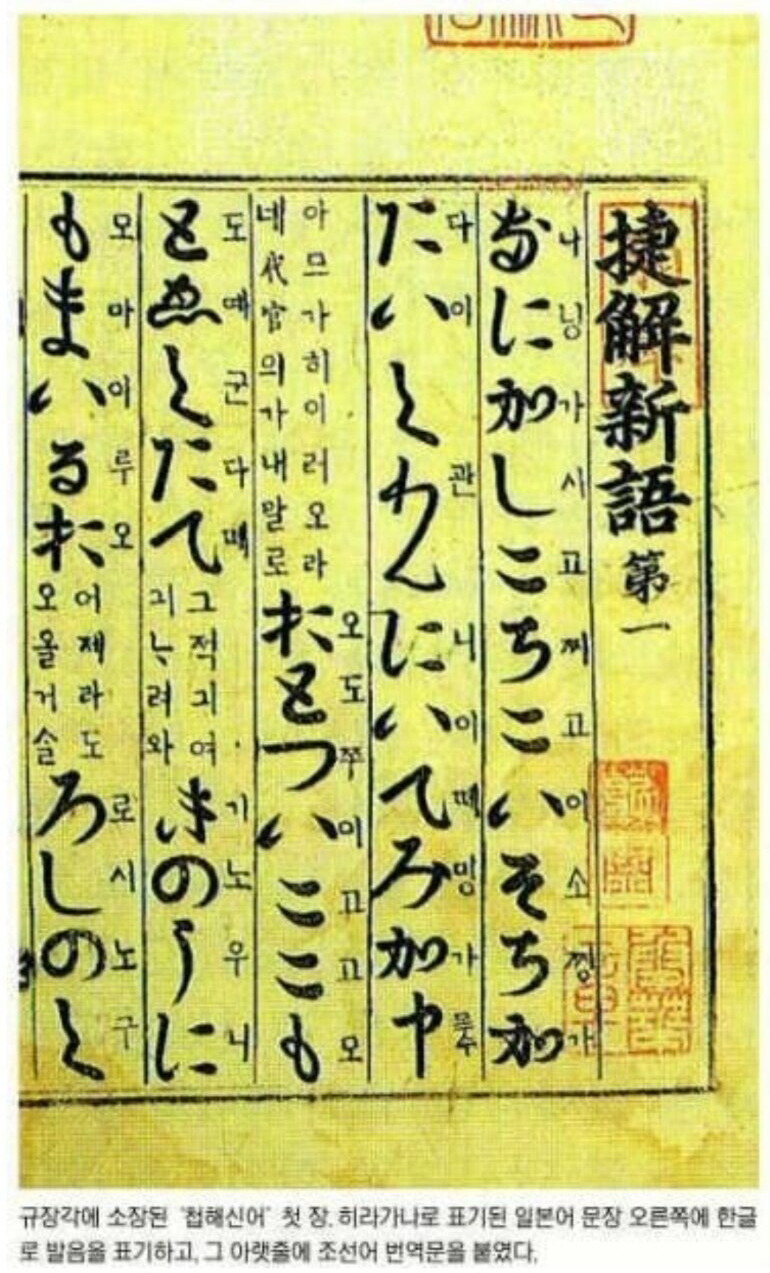 捷解新語 第一
なにかしこちこいそちか
나닝가시고찌고이소찡가
たいくわんにいてみか申
다이관니이떼밍가
아므가히이러오라
네代官의가내말로
おとついここも
오도쭈이고고모
とゑくたて
군다
きのうに
기노우니
もまいるお
모마이루오
어제라도
오올거슬
ろしのく
로시노구
규장각에 소장된 '첩해신어' 첫 장. 히라가나로 표기된 일본어 문장 오른쪽에 한글
로 발음을 표기하고, 그 아랫줄에 조선어 번역문을 붙였다.